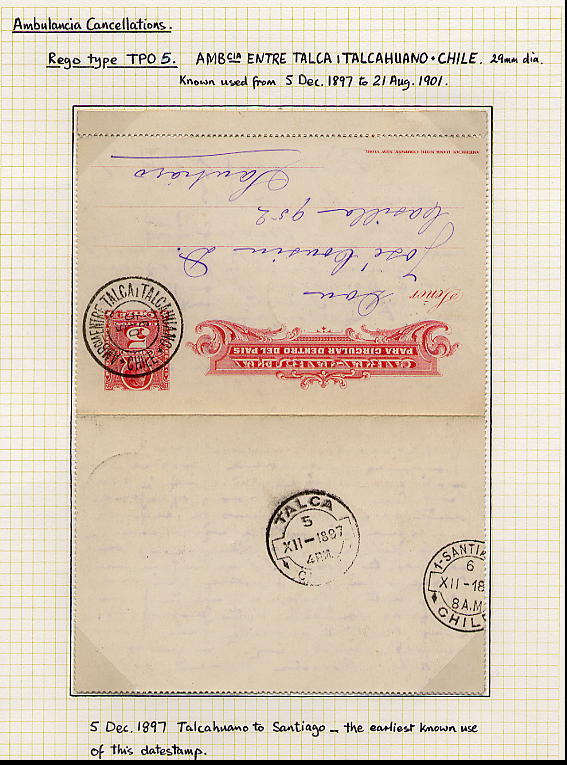 Ambulancia Cancellations.
Rego type TPO 5. AMBCIA ENTRE TALCA I TALCAHUANO • CHILE. 29mm dia.
Known used from 5 Dec. 1897 to 21 Aug. 1901.
AMERICAN BANK NOTE COMPANY, NEW YORK.
CARTA-TARJETA
PARA CIRCULAR DENTRO DEL PAIS
Señor Don
José Cousin D.
Casilla 952
Santiago
ENTRE TALCA I TALCAHUANO
CHILE
TALCA
5
XII-1897
4 P.M.
1-SANTIA
6
XII-18
8 A.M
CHIL
5 Dec. 1897 Talcahuano to Santiago – the earliest known use
of this datestamp.